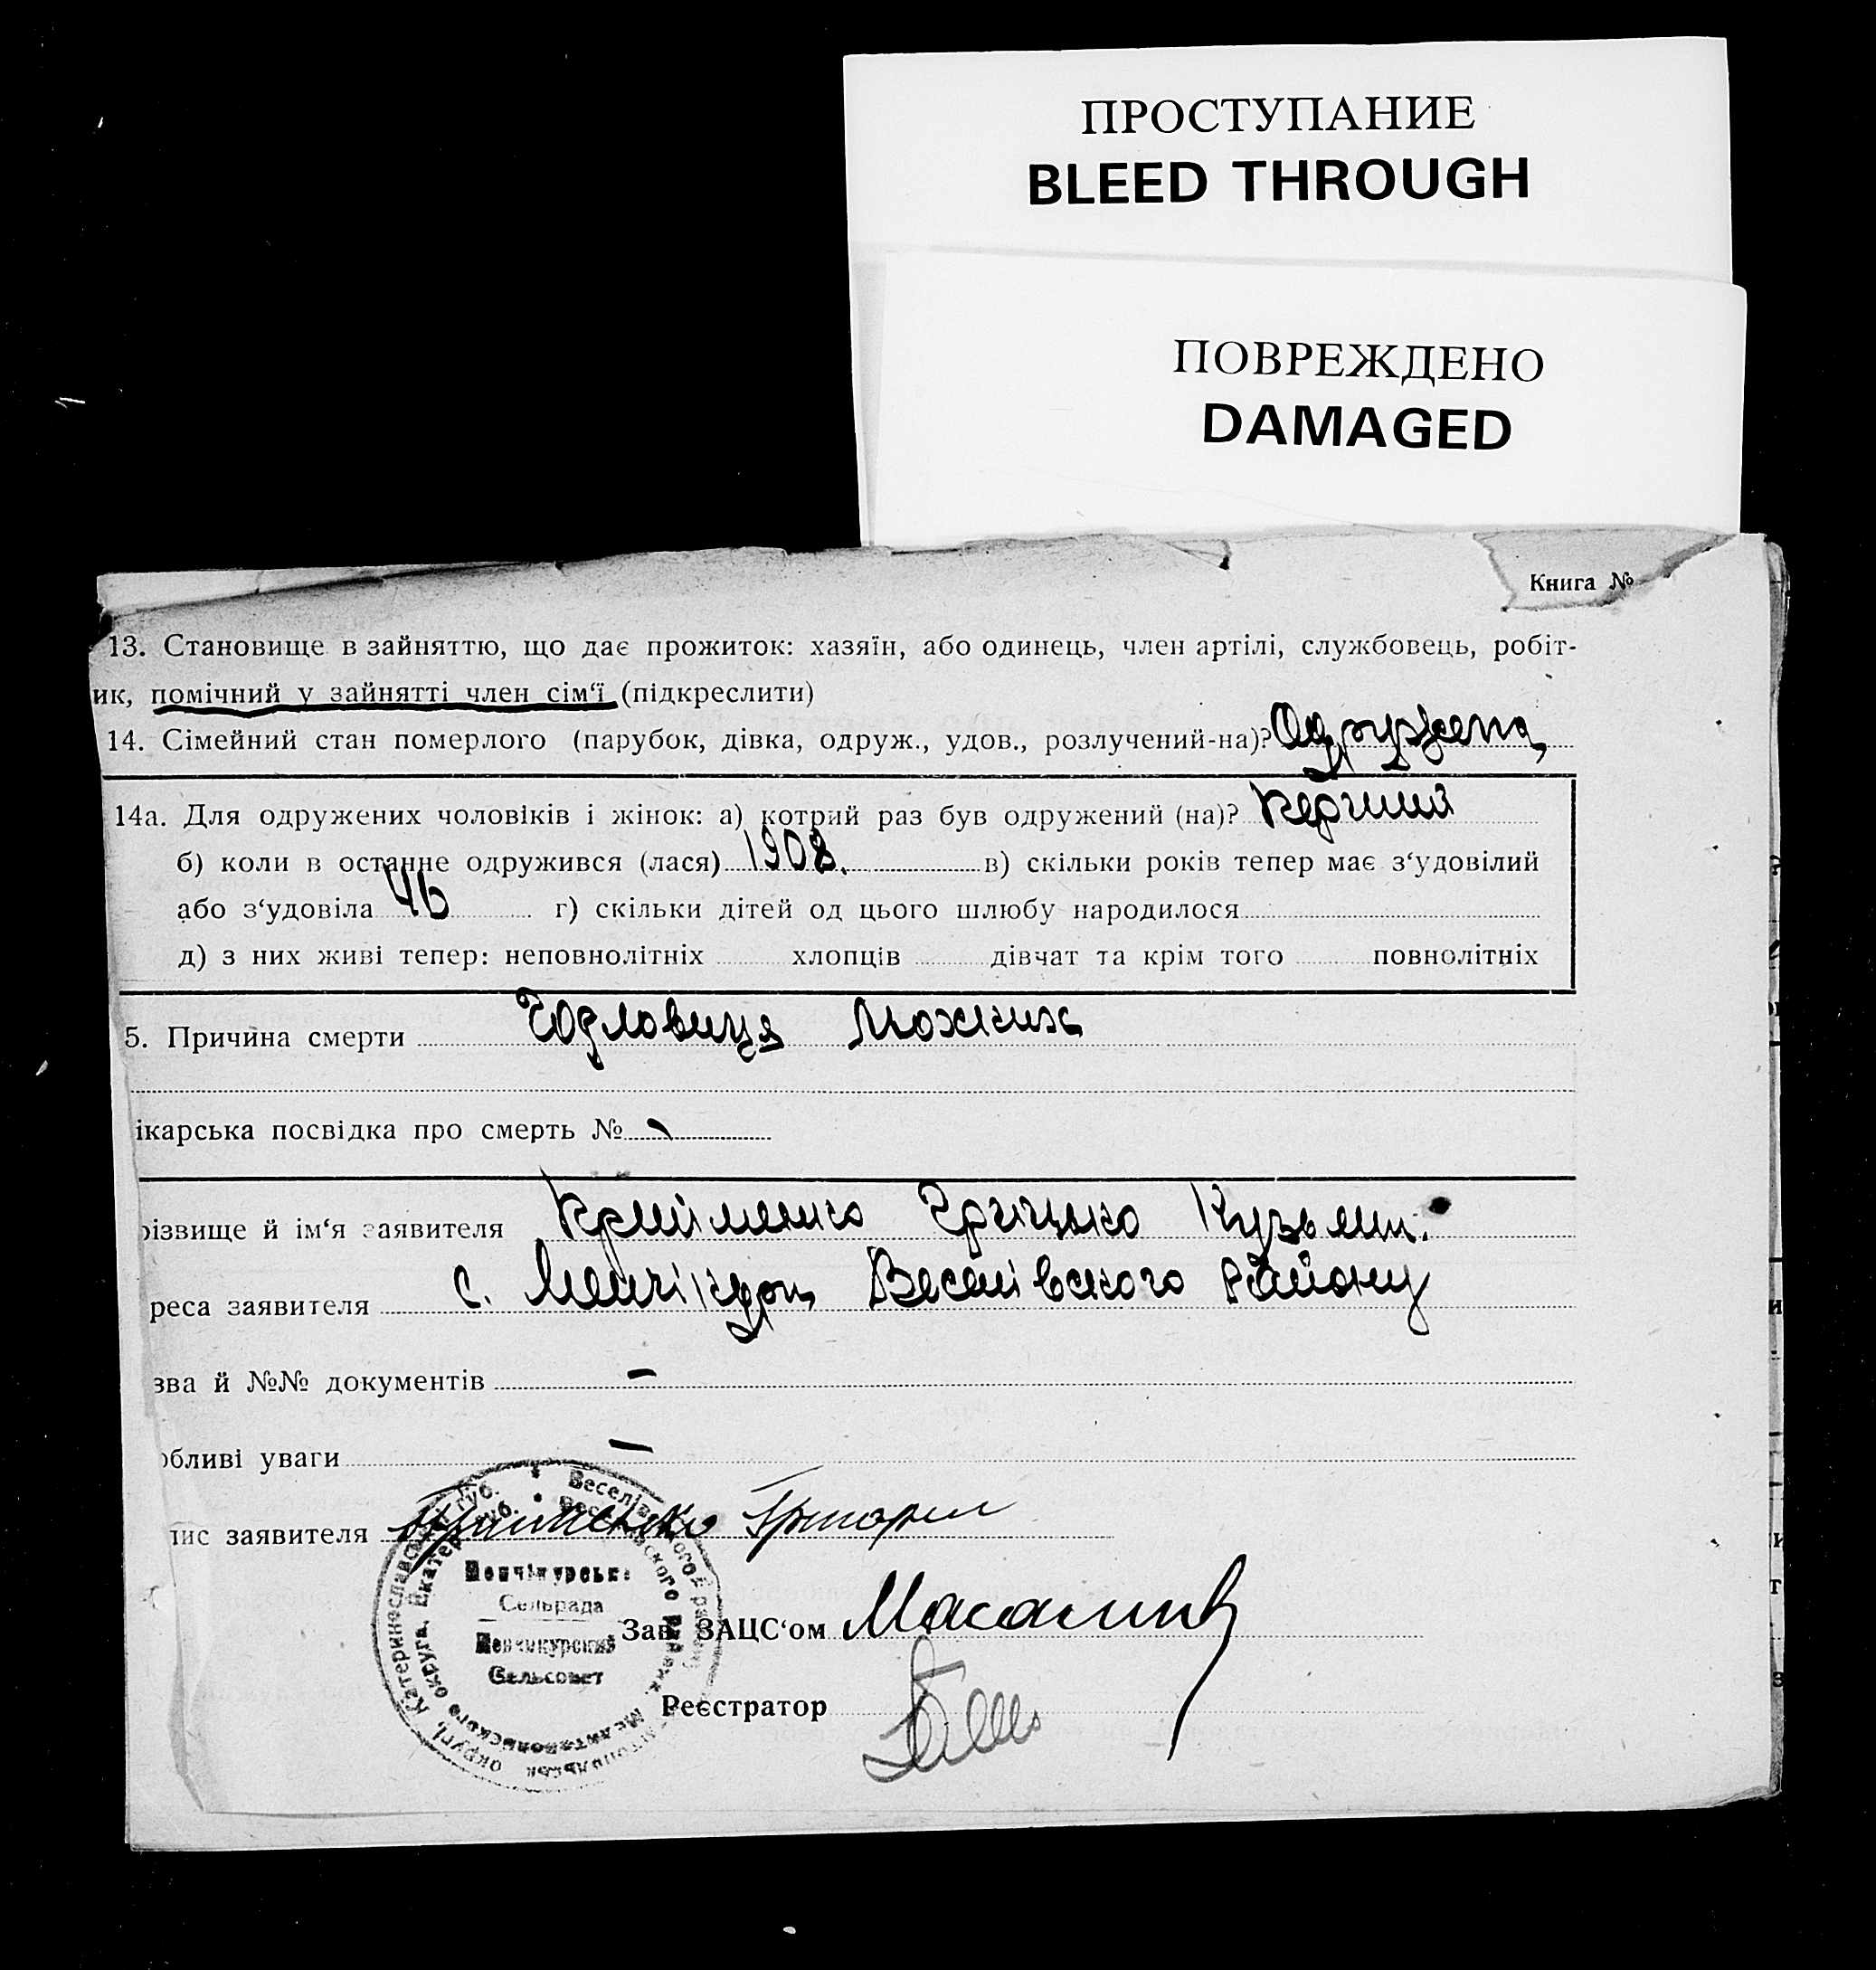 ПРОСТУПАНИЕ
BLEED THROUGH
ПОВРЕЖДЕНО
DAMAGED
Книга №
13. Становище в зайняттю, що дає прожиток: хазяїн, або одинець, член артілі, службовець, робіт-
ик, помічний у зайнятті член сім'ї (підкреслити)
14. Сімейний стан померлого (парубок, дівка, одруж., удов., розлучений-на)? Одружена
14а. Для одружених чоловіків і жінок: а) котрий раз був одружений (на)? Перший
б) коли в останне одружився (лася) 1908. в) скільки років тепер має з'удовілий
або з'удовіла 46 г) скільки дітей од цього шлюбу народилося
д) з них живі тепер: неповнолітніх хлопців дівчат та крім того повнолітніх
5. Причина смерти
ікарська посвідка про смерть № -
різвище й ім'я заявителя Грицько Кузьм.
реса заявителя с. Менчікури Веселівського Району
зва й №№ документів -
обливі уваги -
пис заявителя Григорий
Менчікурська
Сельрада
Менчикурский
Сельсовет
Зав. ЗАЦС'ом
Реєстратор